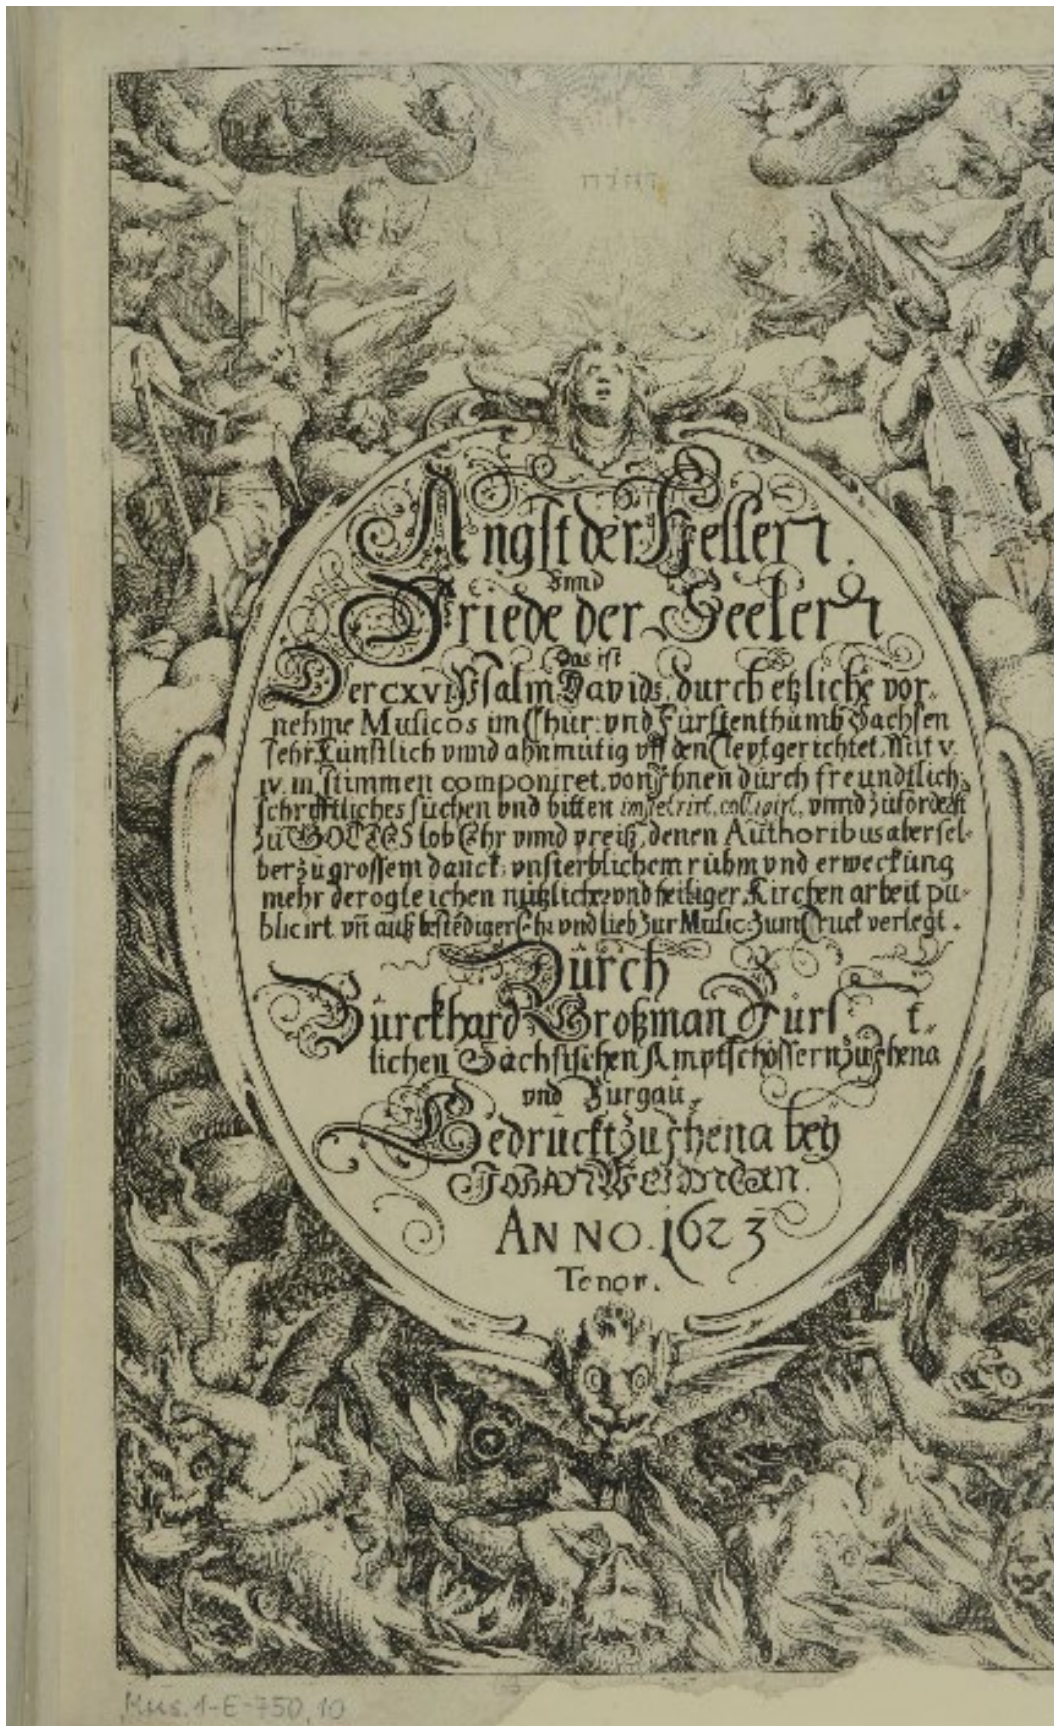 יהוה
Angst der Hellen
vnnd
Friede der Seelen
Das ist
Der CXVI Psalm Davids, durch etzliche vor-
nehme Musicos im Chur: vnd Fürstenthumb Sachsen
sehr künstlich vnnd ahnmutig vff den Text gerichtet, Mit v.
IV. III stimmen componiret, von Ihnen durch freundtlich:
schrifftliches suchen vnd bitten impetrirt, colligirt, vnnd zuforderst
zu GOTTES lob Ehr vnnd preiß, denen Authoribus aber sel-
ber zu grossem danck, vnsterblichem rühm vnd erweckung
mehr derogleichen nützlicher vnd heiliger Kirchen arbeit pu-
blicirt vn̄ auß bestēdiger Ehr vnd lieb zur Music: zum Druck verlegt.
Dürch
Bürckhard Großman Fürst-
lichen Sächsischen Amptschössern zu Jhena
vnd Burgaü.
Gedrückt zu Jhena beÿ
JOHAN WEIDNERN.
ANNO. 1623
Tenor.
Mus. 1-E-750,10